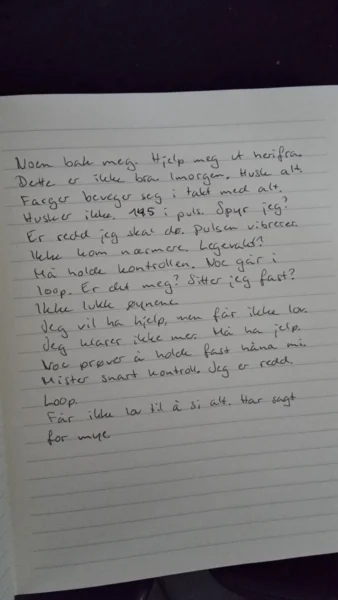 Noen bak meg. Hjelp meg ut herifra.
Dette er ikke bra. Imorgen. Husk alt.
Farger beveger seg i takt med alt.
Husker ikke. 145 i puls. Spyr jeg?
Er redd jeg skal dø. Pulsen vibrerer.
Ikke kom nærmere. Legevakt?
Må holde kontrollen. Noe går i
loop. Er det meg? Sitter jeg fast?
Ikke lukk øynene
Jeg vil ha hjelp, men får ikke lov.
Jeg klarer ikke mer. Må ha jelp.
Noe prøver å holde fast håna mi.
Mister snart kontroll. Jeg er redd.
Loop.
Får ikke lov til å si alt. Har sagt
for mye